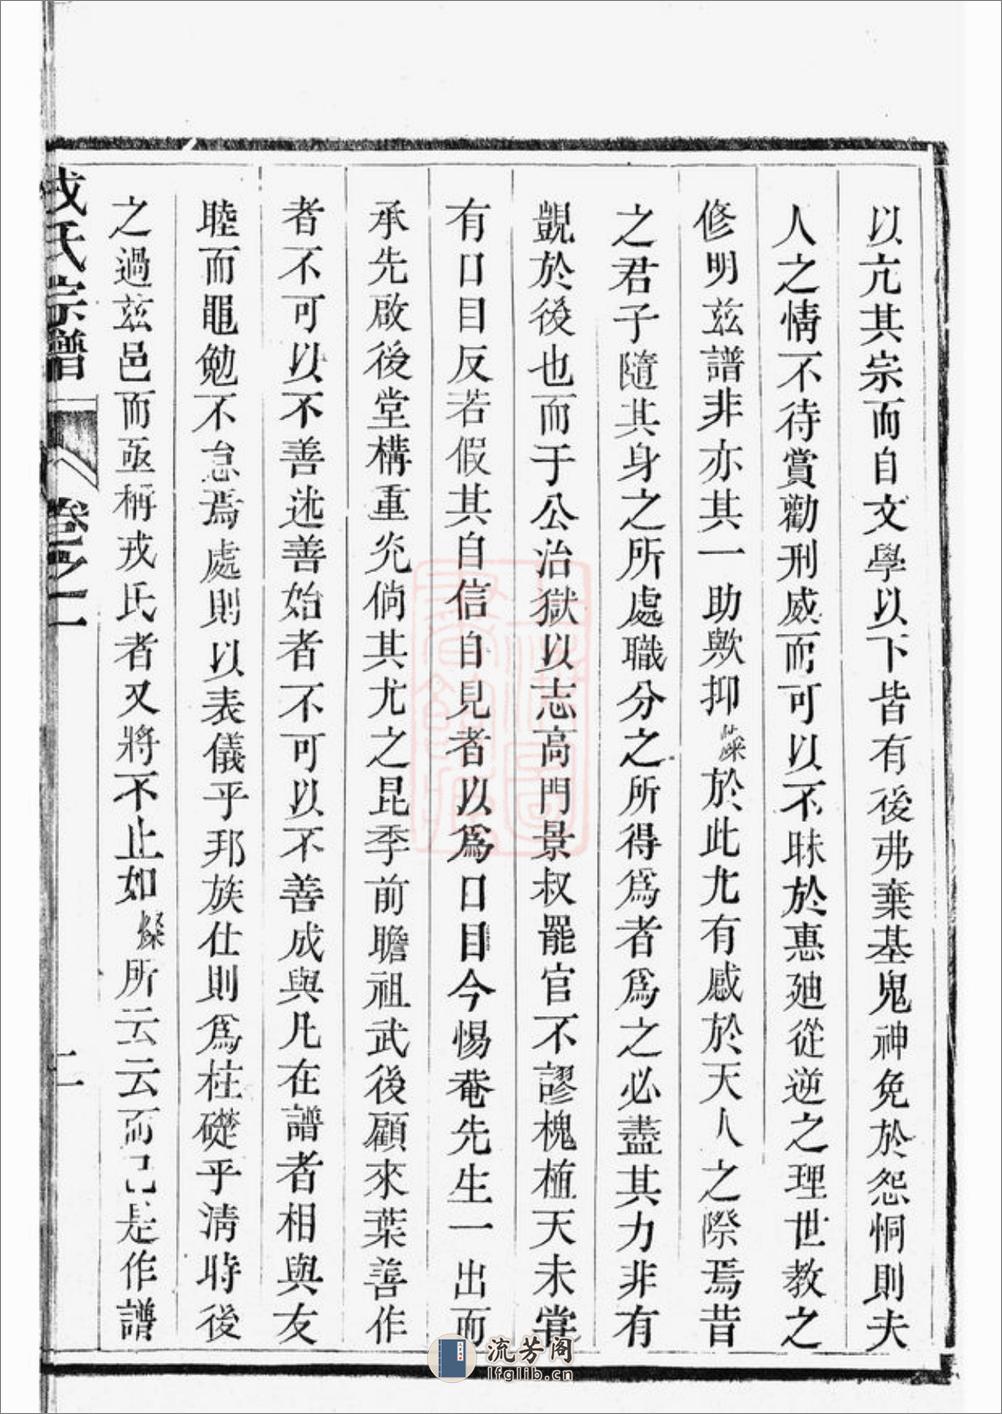 以亢其宗而自文學以下皆有後弗棄基鬼神免於怨恫則夫
人之情不待賞勸刑威而可以不昧於惠廸從逆之理世教之
修明茲譜非亦其一助歟抑燦於此尤有感於天人之際焉昔
之君子隨其身之所處職分之所得爲者爲之必盡其力非有
覬於後也而于公治獄以志高門景叔罷官不謬槐植天未嘗
有口目反若假其自信自見者以爲口目今惕菴先生一出而
承先啟後堂構重光倘其尤之昆季前瞻祖武後顧來葉善作
者不可以不善述善始者不可以不善成與凡在譜者相與友
睦而黽勉不怠焉處則以表儀乎邦族仕則爲柱礎乎淸時後
之過茲邑而亟稱戎氏者又將不止如燦所云云而已是作譜
戎氏宗譜 卷之一 二
流芳阁
lfglib.cn